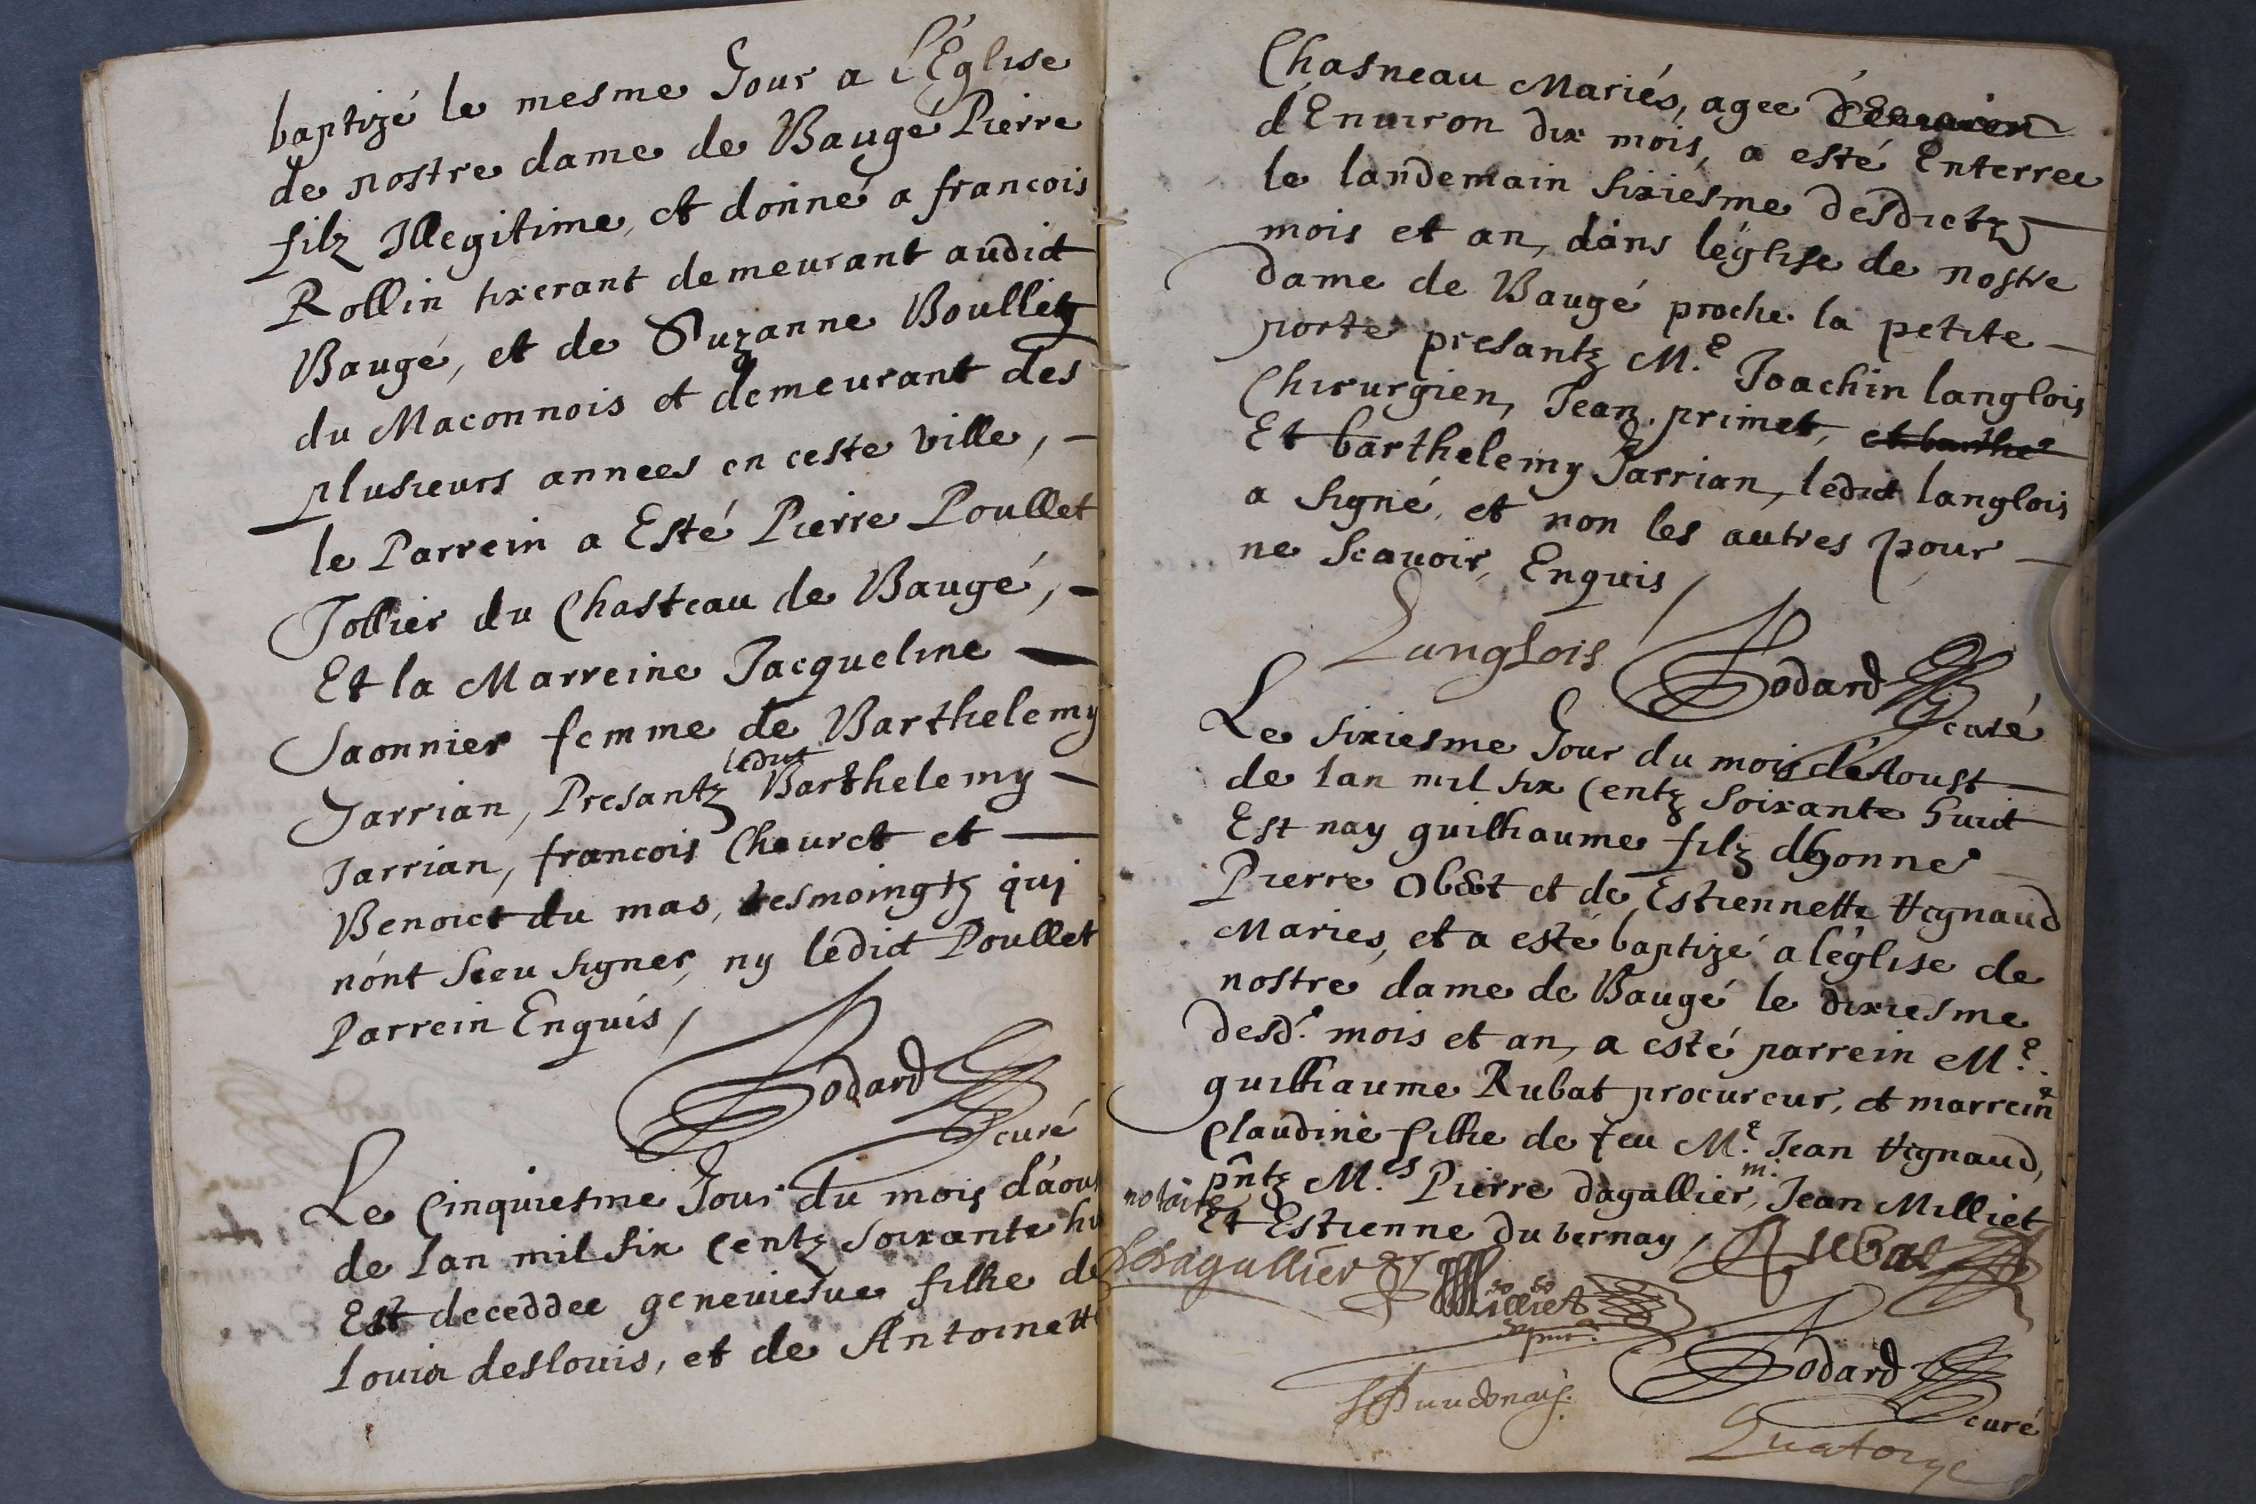 baptizé le mesme Jour a l'Église
de nostre dame de Baugé Pierre
filz Illegitime, et donné a francois
Rollin tixerant demeurant audict
Baugé, et de Suzanne Boullietz
du Maconnois et demeurant des
plusieurs annees en ceste ville, -
le Parrein a Esté Pierre Poullet
Jollier du Chasteau de Baugé, -
Et la Marreine Jacqueline -
Saonnier femme de Barthelemy
Jarrian, Presantz ledict Barthelemy -
Jarrian, francois Chevret et -
Benoict du mas, tesmoingtz qui
n'ont sceu signer, ny ledict Poullet
Parrein Enquis /
Godard
curé
Le Cinquiesme Jour du mois d'aous
de lan mil six Centz soixante hu
Est deceddee geneviesve filhe de
Louis deslouis, et de Antoinett
Chasneau Mariés, agee d'Environ
d'Environ dix mois, a esté Enterree
le landemain sixiesme desdictz
mois et an, dans l'église de nostre
dame de Baugé proche la petite -
porte presantz M.e Joachin langlois
Chirurgien, Jean primet, et barthe
Et barthelemy Jarrian, ledict langlois
a signé, et non les autres pour -
ne Scavoir, Enquis /
Langlois
Godard
curé
Le sixiesme Jour du mois d'Aoust
de lan mil six Centz soixante huit
Est nay guilhaume filz dhonne
Pierre Obet et de Estiennette Vignaud
Maries, et a esté baptizé a l'église de
nostre dame de Baugé le dixiesme
desd. mois et an, a esté parrein M.e
guilhaume Rubat procureur, et marreine
Claudine filhe de feu M.e Jean Vignaud,
pntz M.es Pierre dagallier, m. Jean Milliet
notaire Et Estienne du bernay /
Rubat
Dagallier
Milliet
Godard
curé
Quatorze